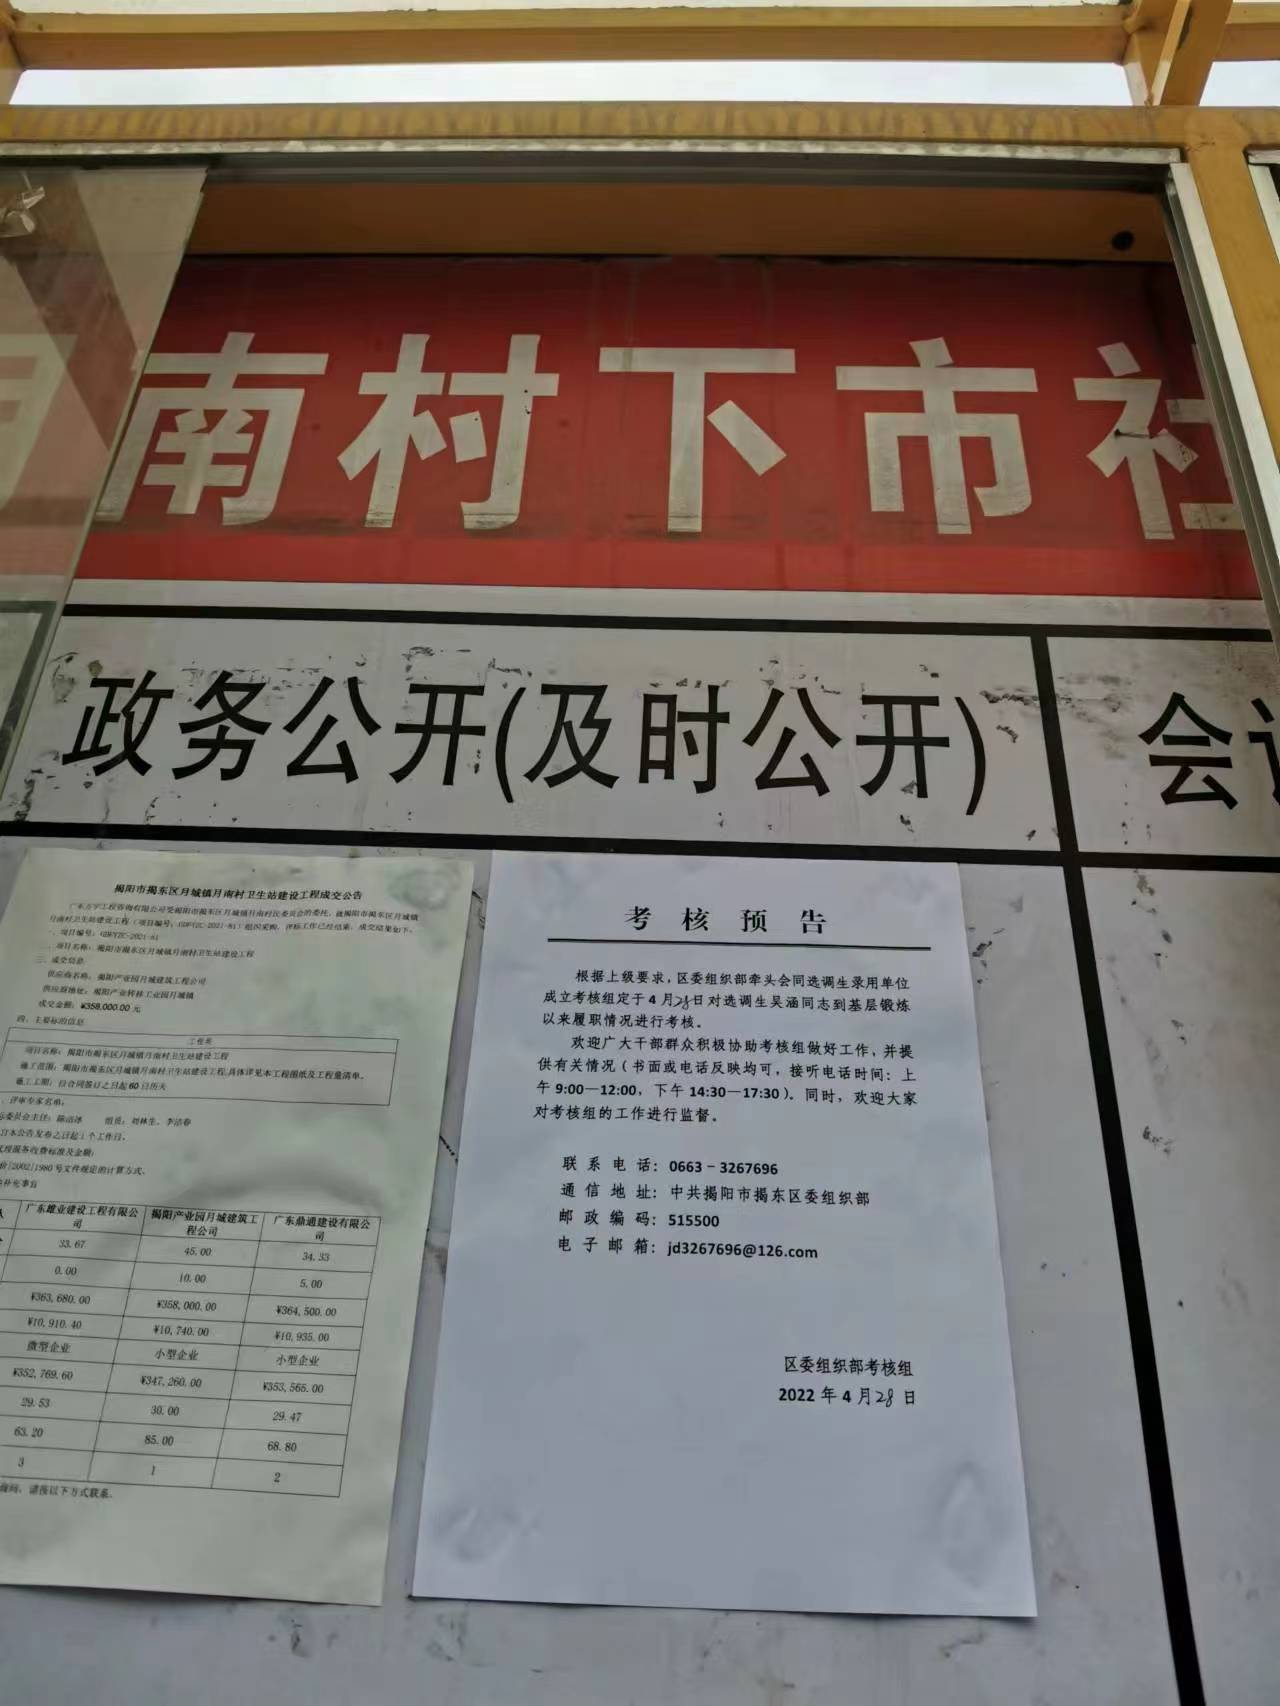 南村下市社
政务公开(及时公开)
会
揭阳市揭东区月城镇月南村卫生站建设工程成交公告
广东方宇工程咨询有限公司受揭阳市揭东区月城镇月南村民委员会的委托，就揭阳市揭东区月城镇
月南村卫生站建设工程（项目编号：GDFYZC-2021-81）组织采购，评标工作已经结束，成交结果如下。
一、项目编号：GDFYZC-2021-81
二、项目名称：揭阳市揭东区月城镇月南村卫生站建设工程
三、成交信息
供应商名称：揭阳产业园月城建筑工程公司
供应商地址：揭阳产业转移工业园月城镇
成交金额：¥358,000.00 元
四、主要标的信息
工程类
项目名称：揭阳市揭东区月城镇月南村卫生站建设工程
施工范围：揭阳市揭东区月城镇月南村卫生站建设工程,具体详见本工程图纸及工程量清单。
施工工期：自合同签订之日起 60 日历天
、评审专家名单：
委员会主任：陈洁冰 组员：刘林生、李洁春
自本公告发布之日起 1 个工作日。
代理服务收费标准及金额：
价[2002]1980 号文件规定的计算方式。
补充事宜
广东雄业建设工程有限公司 揭阳产业园月城建筑工程公司 广东鼎通建设有限公司
33.67 45.00 34.33
0.00 10.00 5.00
¥363,680.00 ¥358,000.00 ¥364,500.00
¥10,910.40 ¥10,740.00 ¥10,935.00
微型企业 小型企业 小型企业
¥352,769.60 ¥347,260.00 ¥353,565.00
29.53 30.00 29.47
63.20 85.00 68.80
3 1 2
询问，请按以下方式联系。
考核预告
根据上级要求，区委组织部牵头会同选调生录用单位
成立考核组定于 4 月28日对选调生吴涵同志到基层锻炼
以来履职情况进行考核。
欢迎广大干部群众积极协助考核组做好工作，并提
供有关情况（书面或电话反映均可，接听电话时间：上
午 9:00—12:00，下午 14:30—17:30）。同时，欢迎大家
对考核组的工作进行监督。
联系电话：0663－3267696
通信地址：中共揭阳市揭东区委组织部
邮政编码：515500
电子邮箱：jd3267696@126.com
区委组织部考核组
2022 年 4 月28 日